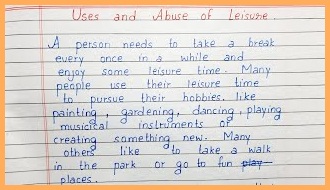 Uses and Abuse of Leisure.
A person needs to take a break
every once in a while and
enjoy some leisure time. Many
people use their leisure time
to pursue their hobbies, like
painting, gardening, dancing, playing
musicical instruments or
creating something new. Many
others like to take a walk
in the park or go to fun play
places.